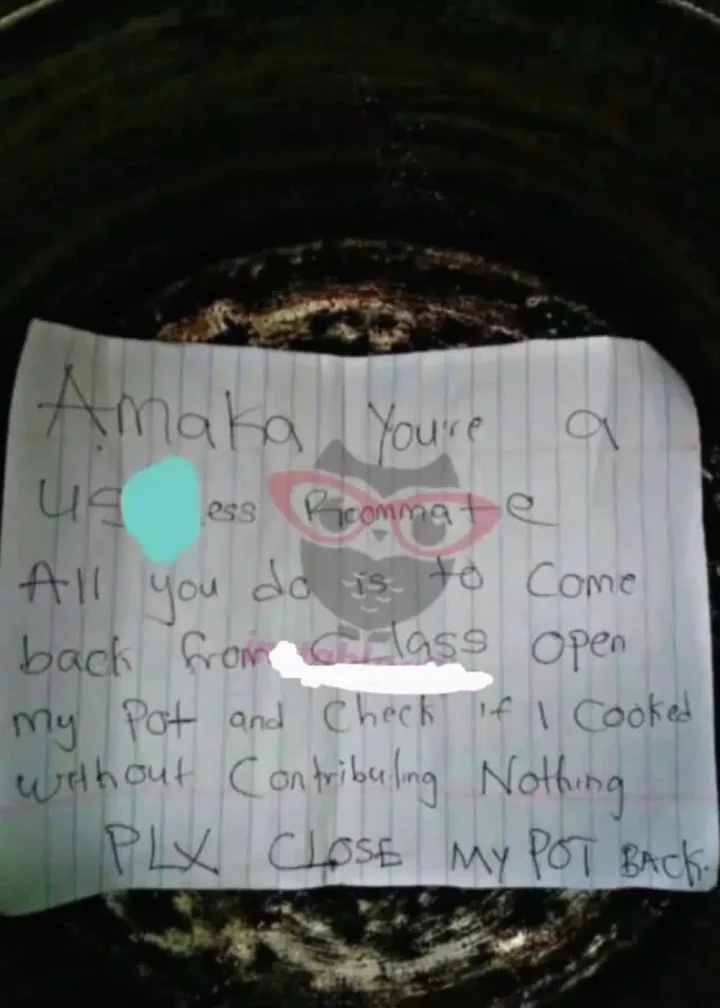 Amaka You're a
us ess Roommate
All you do is to Come
back from Class open
my Pot and Check if I Cooked
without Contributing Nothing
PLX CLOSE MY POT BACK.